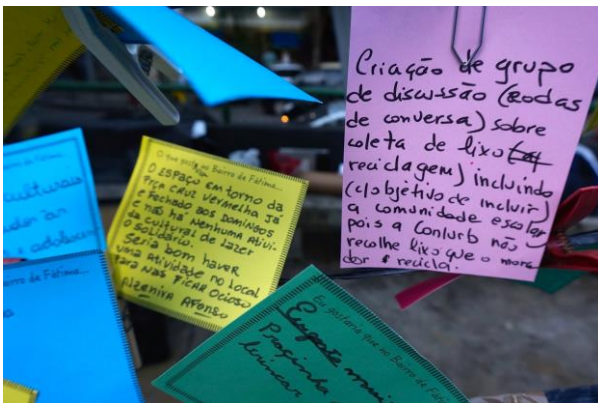 Criação de grupo
de discussão (rodas
de conversa) sobre
coleta de lixo
reciclagem) incluindo
(c/objetivo de incluir)
a comunidade escolar
pois a Conlurb não
recolhe lixo que o mora
dor recicla.
O que gosto no Bairro de Fátima...
O ESPAÇO EM torno da
Praça CRUZ VERMELHA JÁ
É FECHADO AOS DOMINGOS
E não há Nenhuma Ativi-
da cultural de Lazer
o solidário.
Seria bom haver
uma Atividade no local
PARA NAS FICAR OCIOSO
AFONSO
Bairro de Fátima...
culturais
e adolescen
Bairro de Fátima...
Eu gostaria que no Bairro de Fáti
Pracinha
brincar